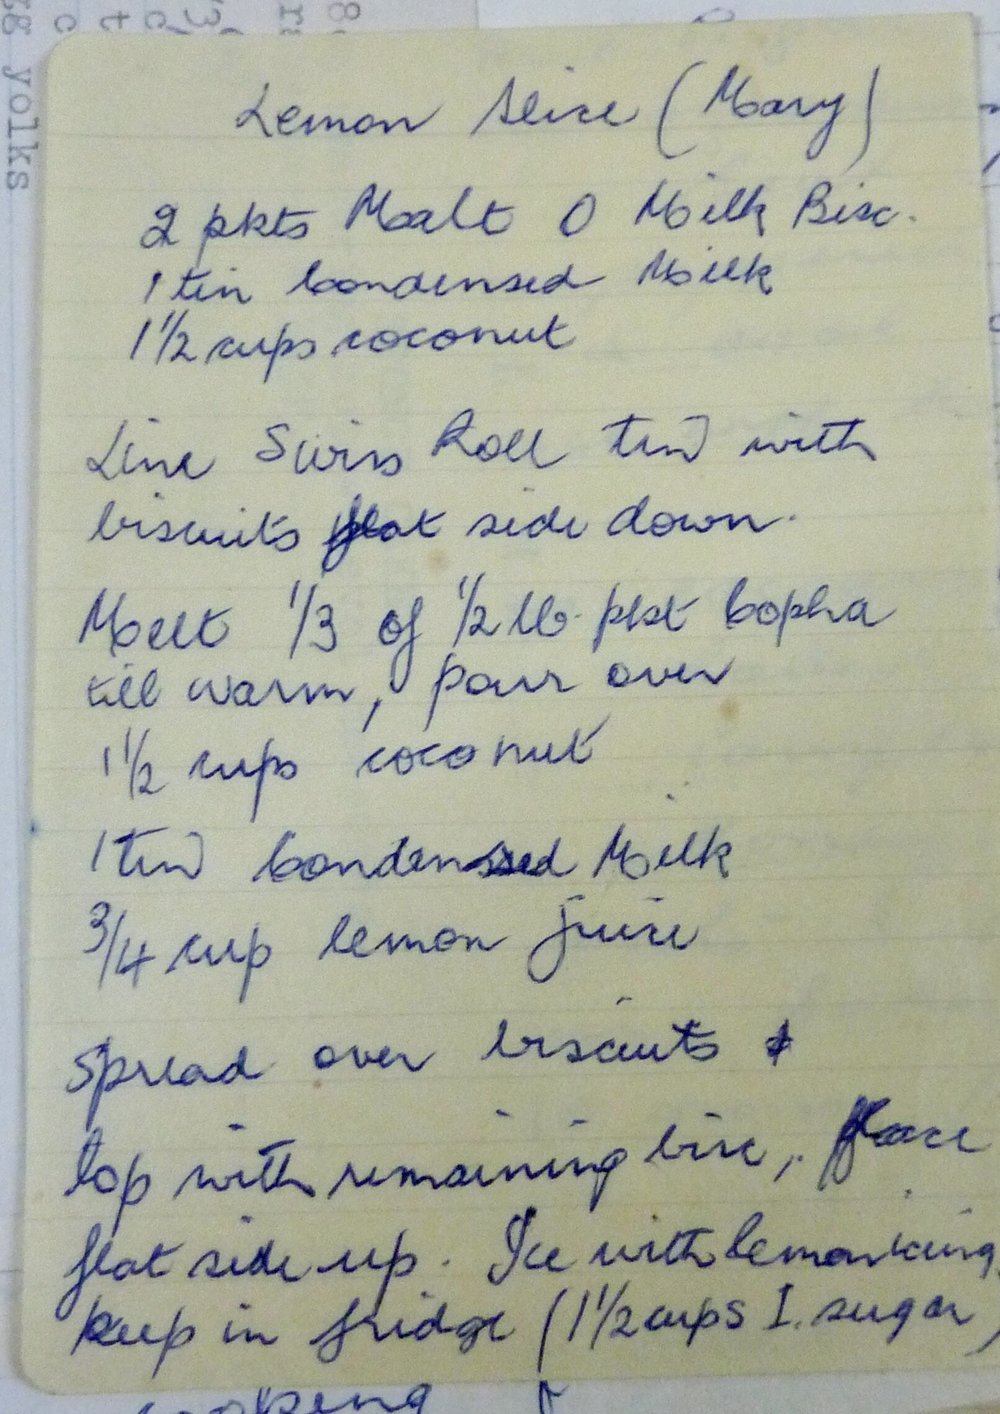 Lemon Slice (Mary)
2 pkts Malt O Milk Bisc.
1 tin Condensed Milk
1 1/2 cups coconut
Line Swiss Roll tin with
biscuits flat side down.
Melt 1/3 of 1/2 lb. pkt Copha
till warm, pour over
1 1/2 cups coconut
1 tin Condensed Milk
3/4 cup lemon juice
Spread over biscuits &
top with remaining bisc,. place
flat side up. Ice with lemon icing,
keep in fridge (1 1/2 cups I. sugar)
yolks